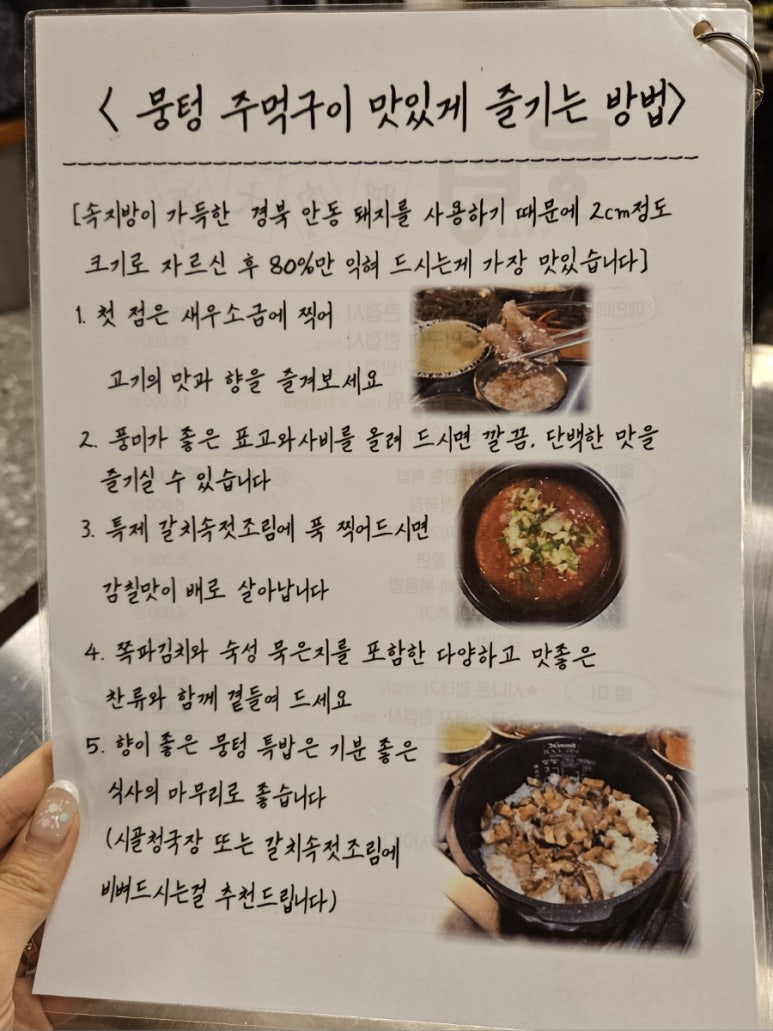 < 뭉텅 주먹구이 맛있게 즐기는 방법>
[속지방이 가득한 경북 안동 돼지를 사용하기 때문에 2cm정도
크기로 자르신 후 80%만 익혀 드시는게 가장 맛있습니다]
1. 첫 점은 새우소금에 찍어
고기의 맛과 향을 즐겨보세요
2. 풍미가 좋은 표고와사비를 올려 드시면 깔끔. 단백한 맛을
즐기실 수 있습니다
3. 특제 갈치속젓조림에 푹 찍어드시면
감칠맛이 배로 살아납니다
4. 쪽파김치와 숙성 묵은지를 포함한 다양하고 맛좋은
찬류와 함께 곁들여 드세요
5. 향이 좋은 뭉텅 특밥은 기분 좋은
식사의 마무리로 좋습니다
(시골청국장 또는 갈치속젓조림에
비벼드시는걸 추천드립니다)